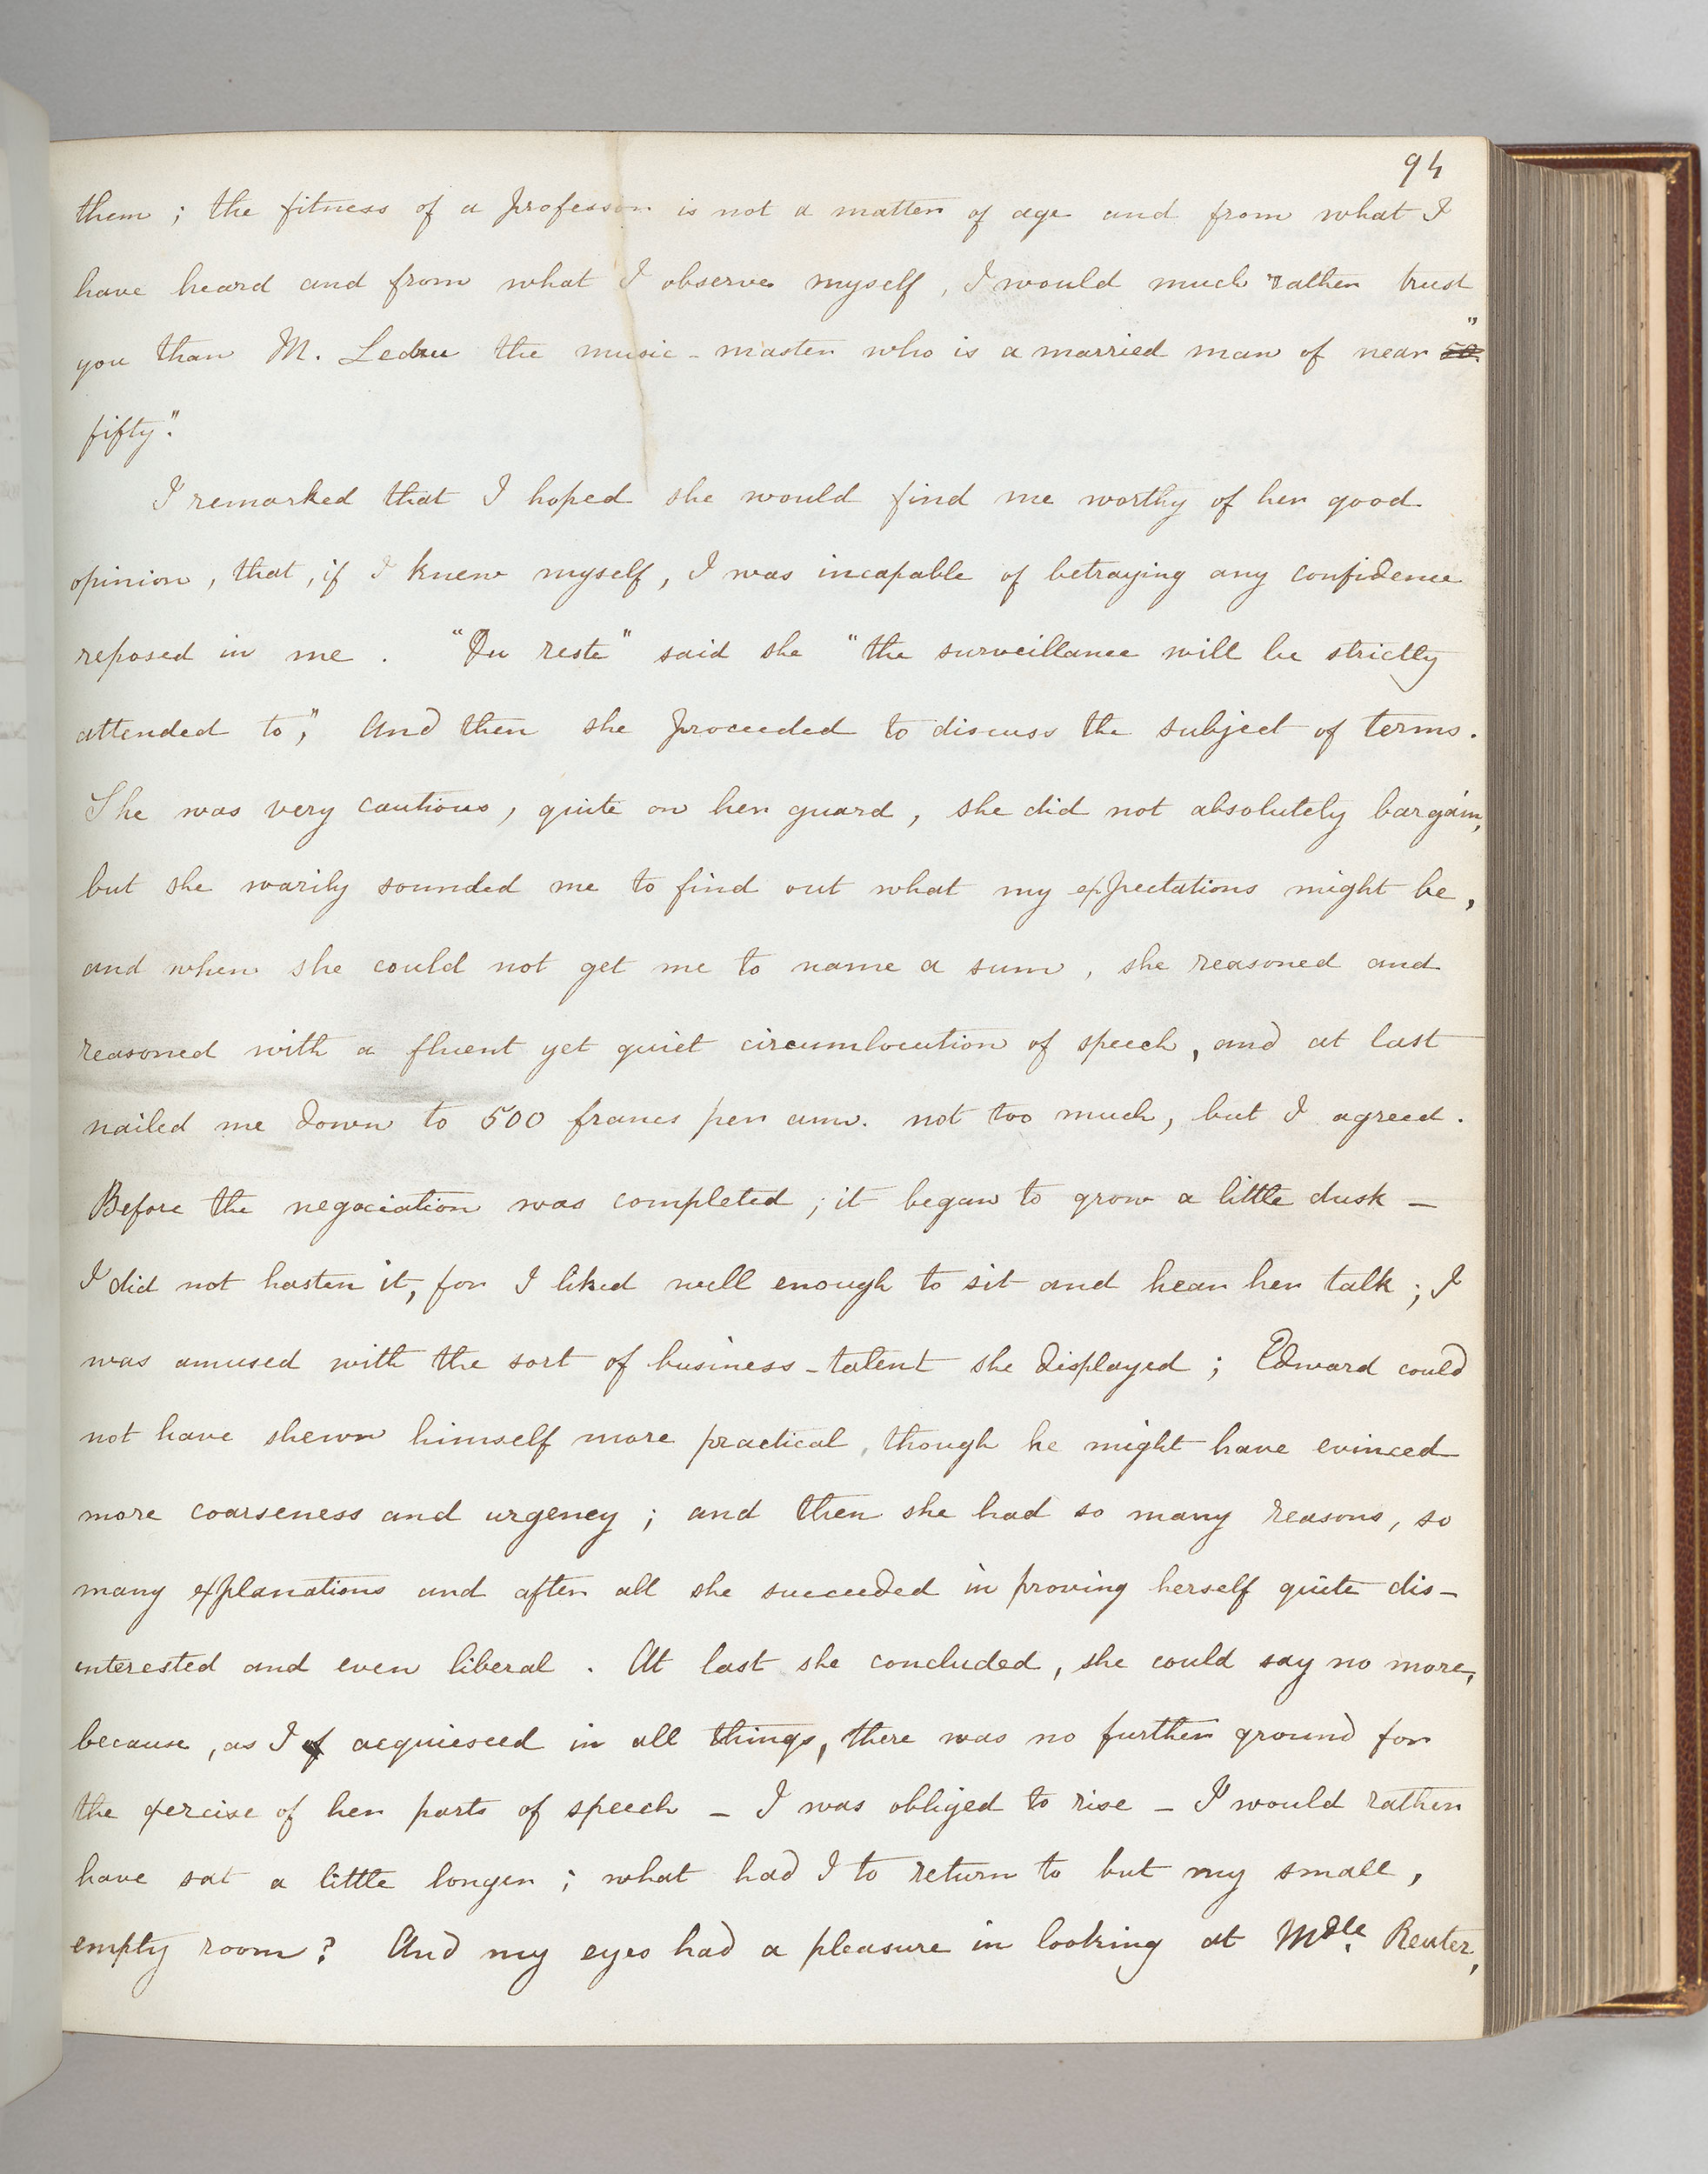 94
them ; the fitness of a professor is not a matter of age and from what I
have heard and from what I observe myself, I would much rather trust
you than M. Ledru the music-master who is a married man of near 50."
fifty."
I remarked that I hoped she would find me worthy of her good
opinion, that, if I knew myself, I was incapable of betraying any confidence
reposed in me. "Du reste" said she "the surveillance will be strictly
attended to", And then she proceeded to discuss the subject of terms.
She was very cautious, quite on her guard, she did not absolutely bargain,
but she warily sounded me to find out what my expectations might be,
and when she could not get me to name a sum, she reasoned and
reasoned with a fluent yet quiet circumlocution of speech, and at last
nailed me down to 500 francs per ann. not too much, but I agreed.
Before the negociation was completed ; it began to grow a little dusk –
I did not hasten it, for I liked well enough to sit and hear her talk ; I
was amused with the sort of business-talent she displayed ; Edward could
not have shewn himself more practical, though he might have evinced
more coarseness and urgency ; and then she had so many reasons, so
many explanations and after all she succeeded in proving herself quite dis-
interested and even liberal. At last she concluded, she could say no more,
because, as I acquiesced in all things, there was no further ground for
the exercise of her parts of speech – I was obliged to rise – I would rather
have sat a little longer ; what had I to return to but my small,
empty room? And my eyes had a pleasure in looking at Mdlle. Reuter,